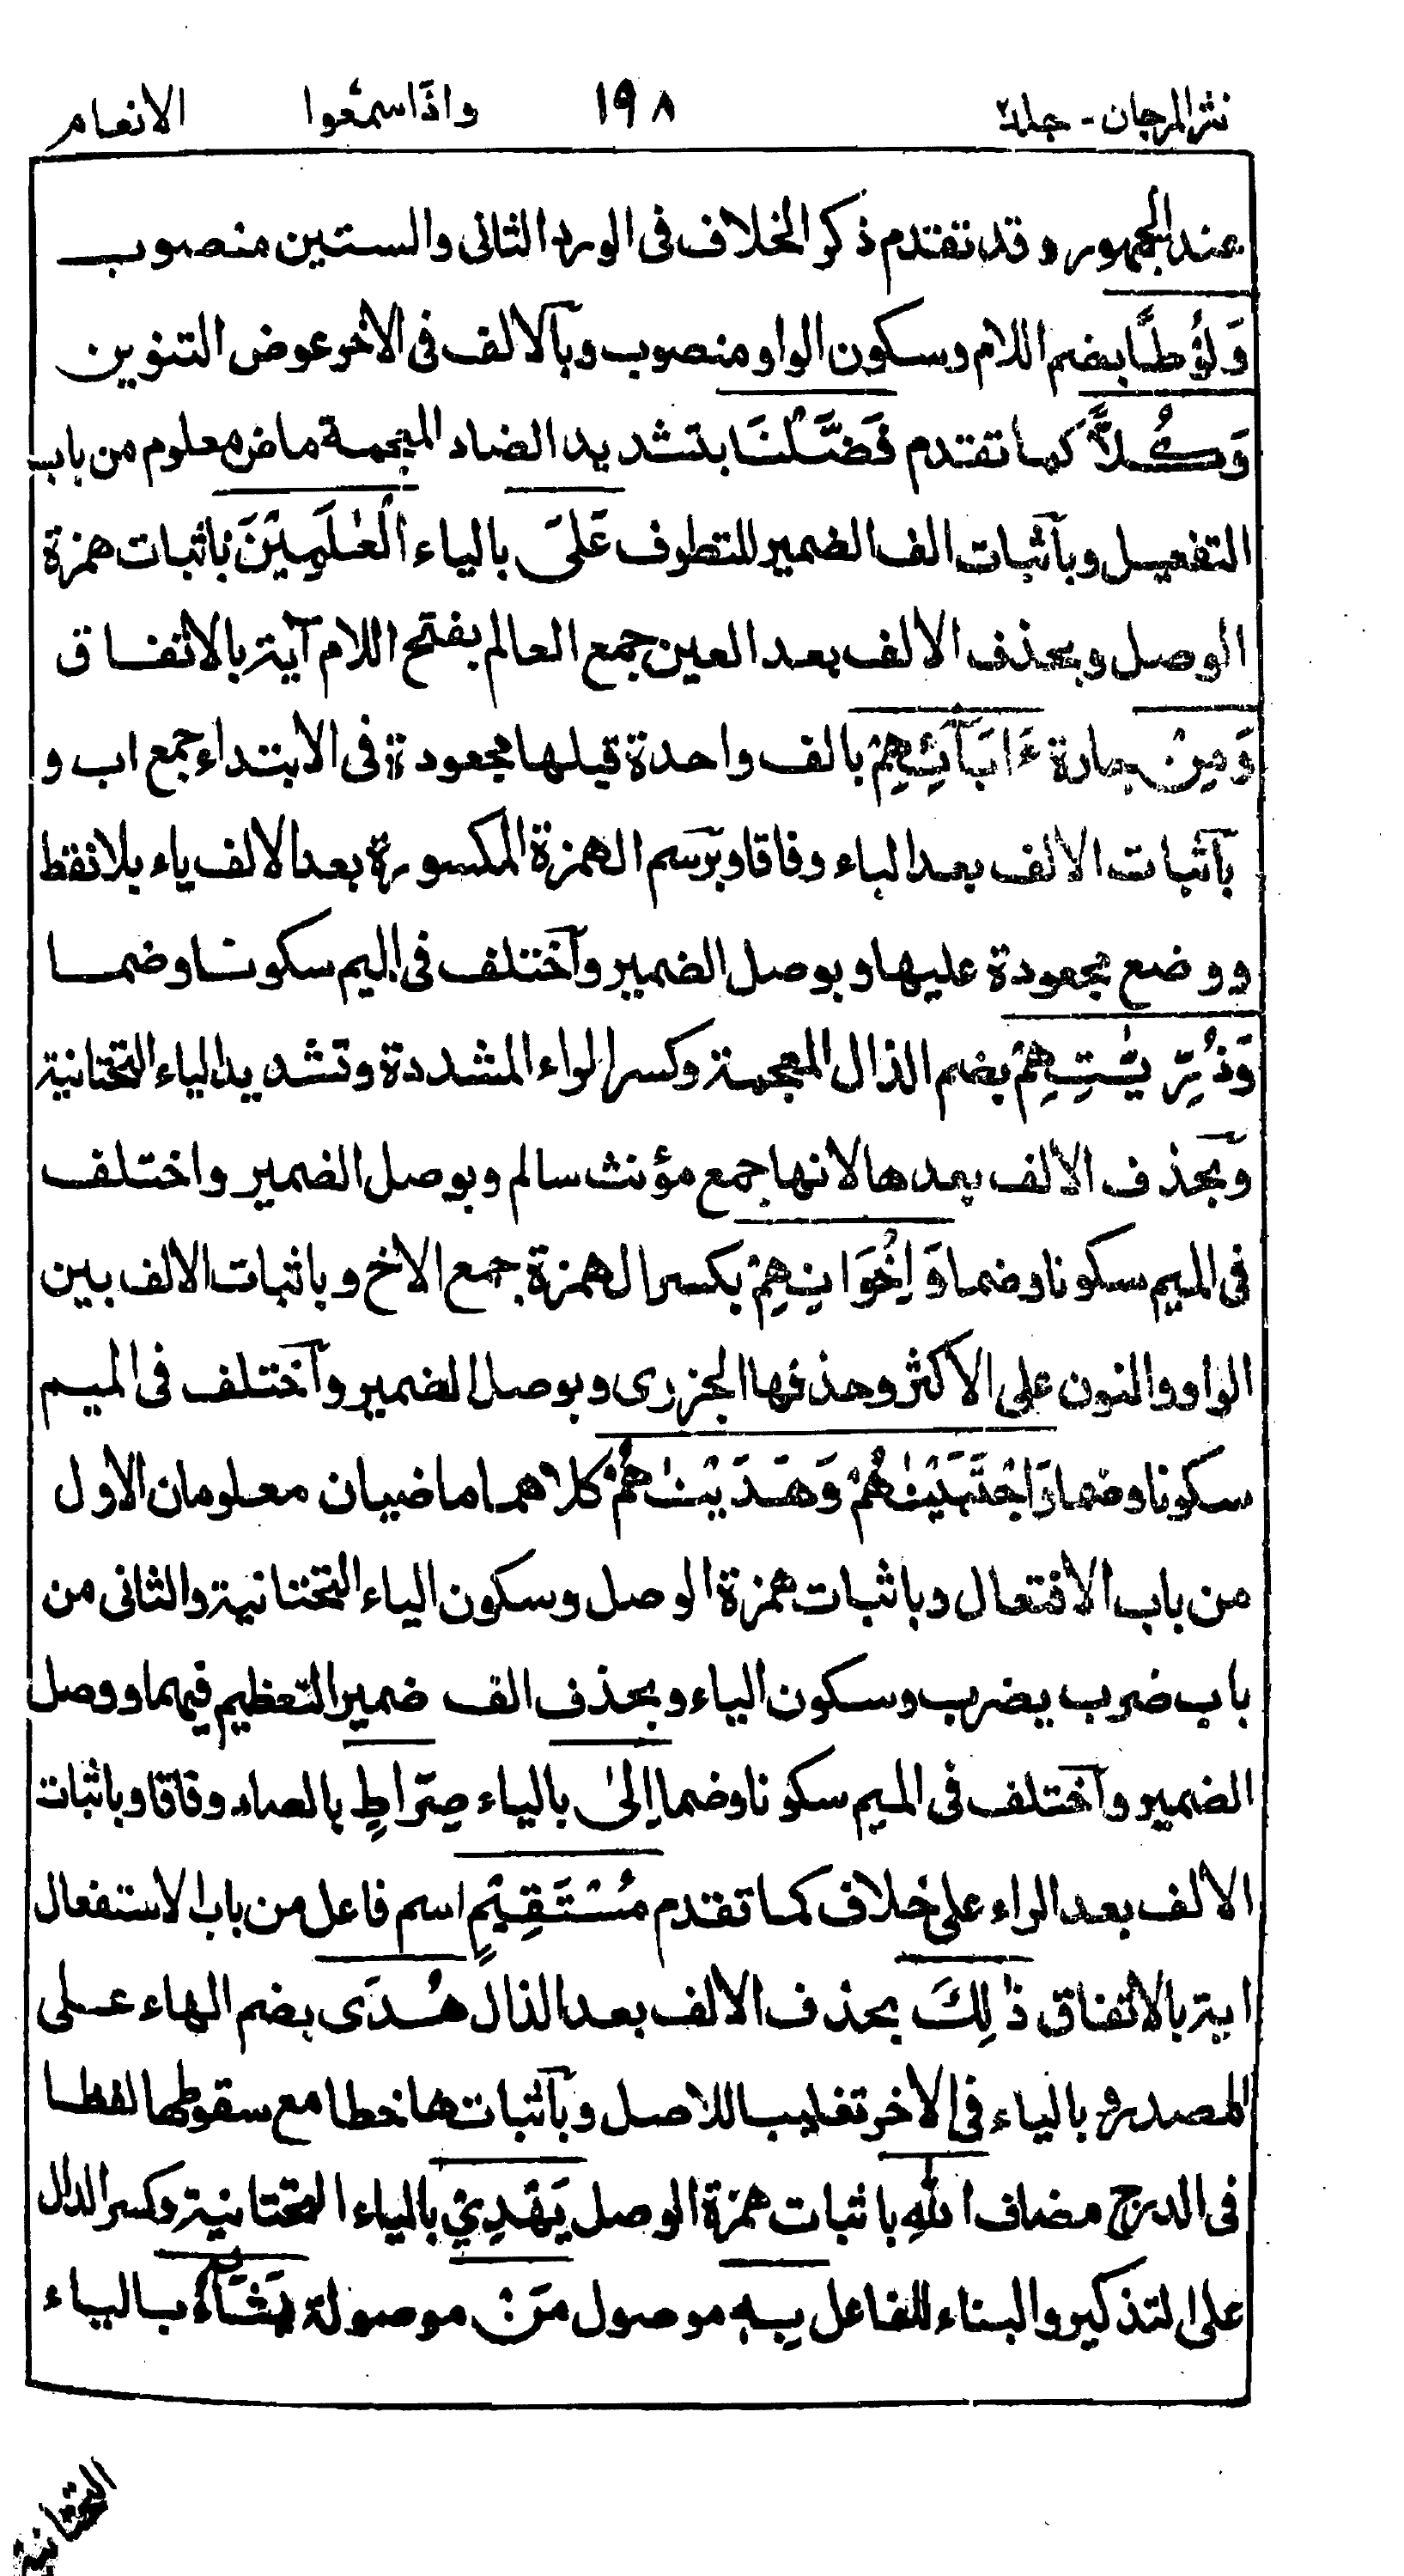 نثر المرجان - جلد۲ ۱۹۸ واذا سمعوا الانعام
عند الجمهور وقد تقدم ذكر الخلاف فى الورد الثانى والستين منصوب
وَلُوْطًا بضم اللام وسكون الواو منصوب وبآلالف فى الاخر عوض التنوين
وَكُلًّا كما تقدم فَضَّلْنَا بتشديد الضاد المعجمة ماض معلوم من باب
التفعيل وبآثبات الف الضمير للتطرف عَلَى بالياء الْعٰلَمِيْنَ باثبات همزة
الوصل وبحذف الالف بعد العين جمع العالم بفتح اللام آية بالاتفاق
وَمِنْ جارة ءَابَآئِهِمْ بالف واحدة قبلها مجعودة فى الابتداء جمع اب و
بآثبات الالف بعد الباء وفاقا وبرسم الهمزة المكسورة بعد الالف ياء بلا نقط
ووضع مجعودة عليها وبوصل الضمير وآختلف فى الميم سكونا وضما
وَذُرِّيّٰتِهِمْ بضم الذال المعجمة وكسر الراء المشددة وتشديد الياء التحتانية
وبحذف الالف بعدها لانها جمع مؤنث سالم وبوصل الضمير واختلف
فى الميم سكونا وضما وَاِخْوَانِهِمْ بكسر الهمزة جمع الاخ وباثبات الالف بين
الواو والنون على الاكثر وحذفها الجزرى وبوصل الضمير وآختلف فى الميم
سكونا وضما وَاجْتَبَيْنٰهُمْ وَهَدَيْنٰهُمْ كلاهما ماضيان معلومان الاول
من باب الافتعال وباثبات همزة الوصل وسكون الياء التحتانية والثانى من
باب ضرب يضرب وسكون الياء وبحذف الف ضمير التعظيم فيهما ووصل
الضمير وآختلف فى الميم سكونا وضما اِلٰى بالياء صِرَاطٍ بالصاد وفاقا وباثبات
الالف بعد الراء على خلاف كما تقدم مُسْتَقِيْمٍ اسم فاعل من باب الاستفعال
اية بالاتفاق ذٰلِكَ بحذف الالف بعد الذال هُدَى بضم الهاء على
المصدر و بالياء فى الاخر تغليبا للاصل وبآثباتها خطا مع سقوطها لفظا
فى الدرج مضاف اللّٰهِ باثبات همزة الوصل يَهْدِيْ بالياء التحتانية وكسر الدال
على التذكير والبناء للفاعل بِهٖ موصول مَنْ موصولة يَشَآءُ بالياء
التحتانية